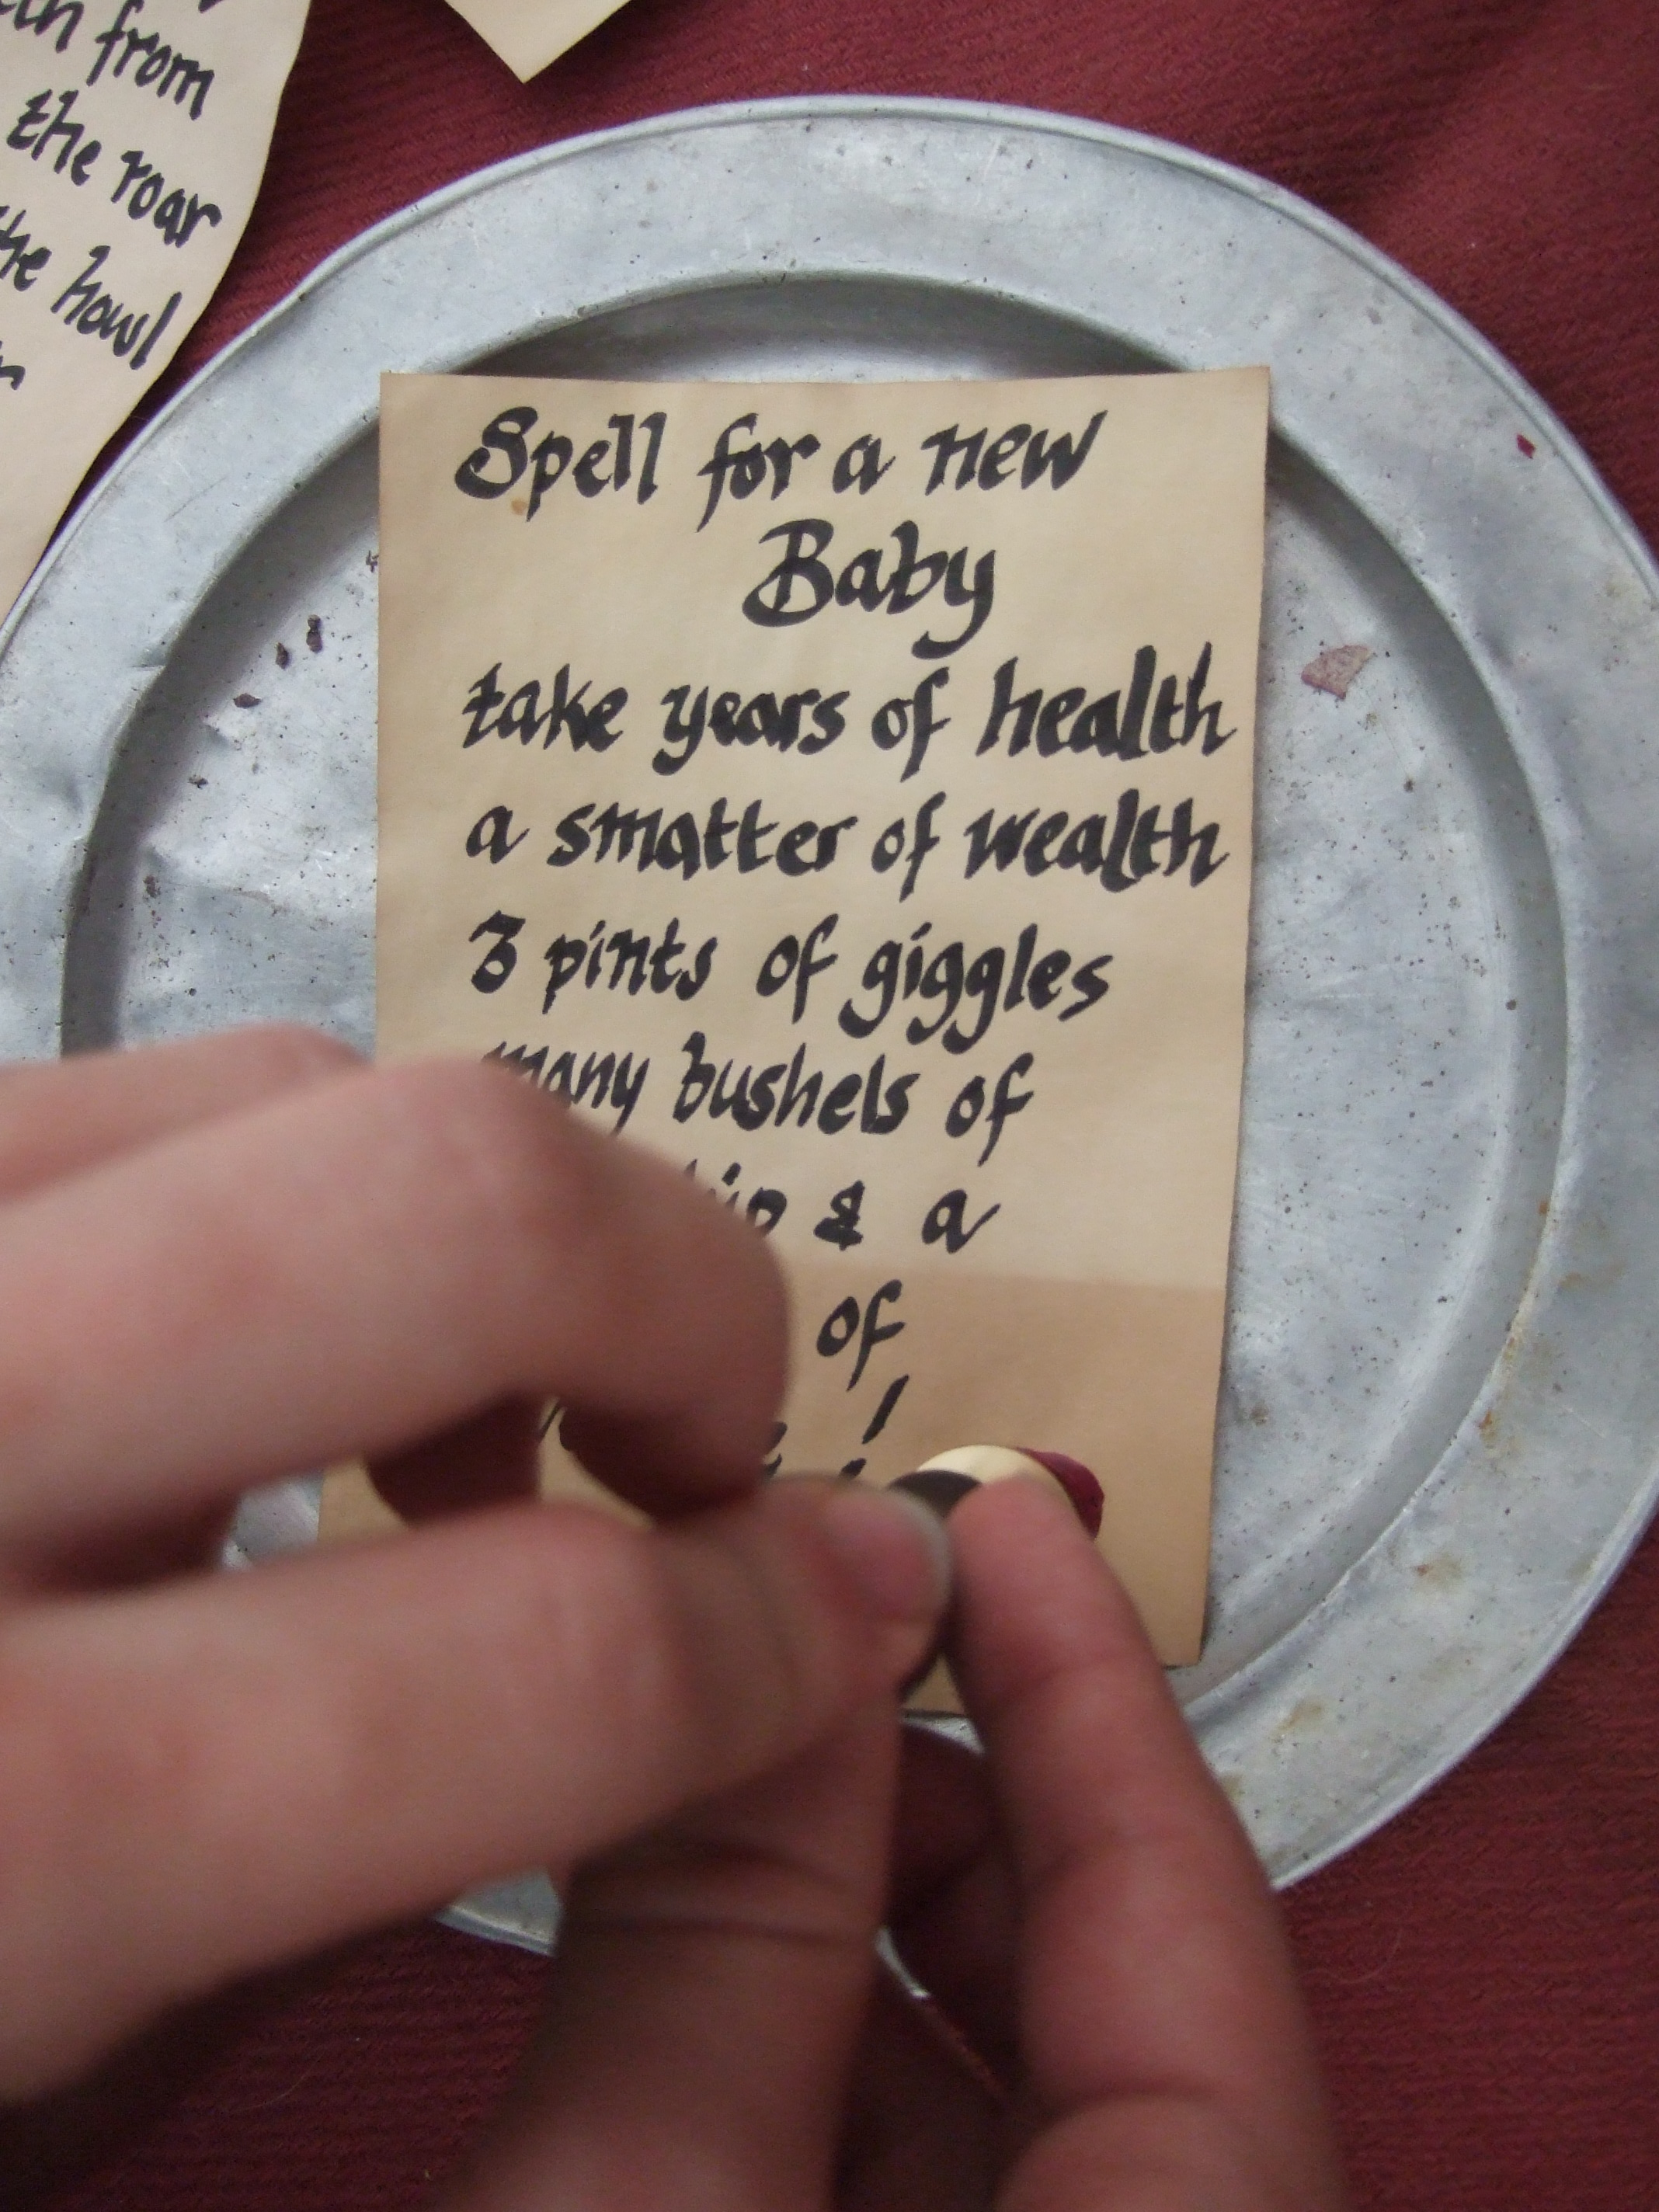 from
the roar
the howl
Spell for a new
Baby
take years of health
a smatter of wealth
3 pints of giggles
many bushels of
& a
of
!